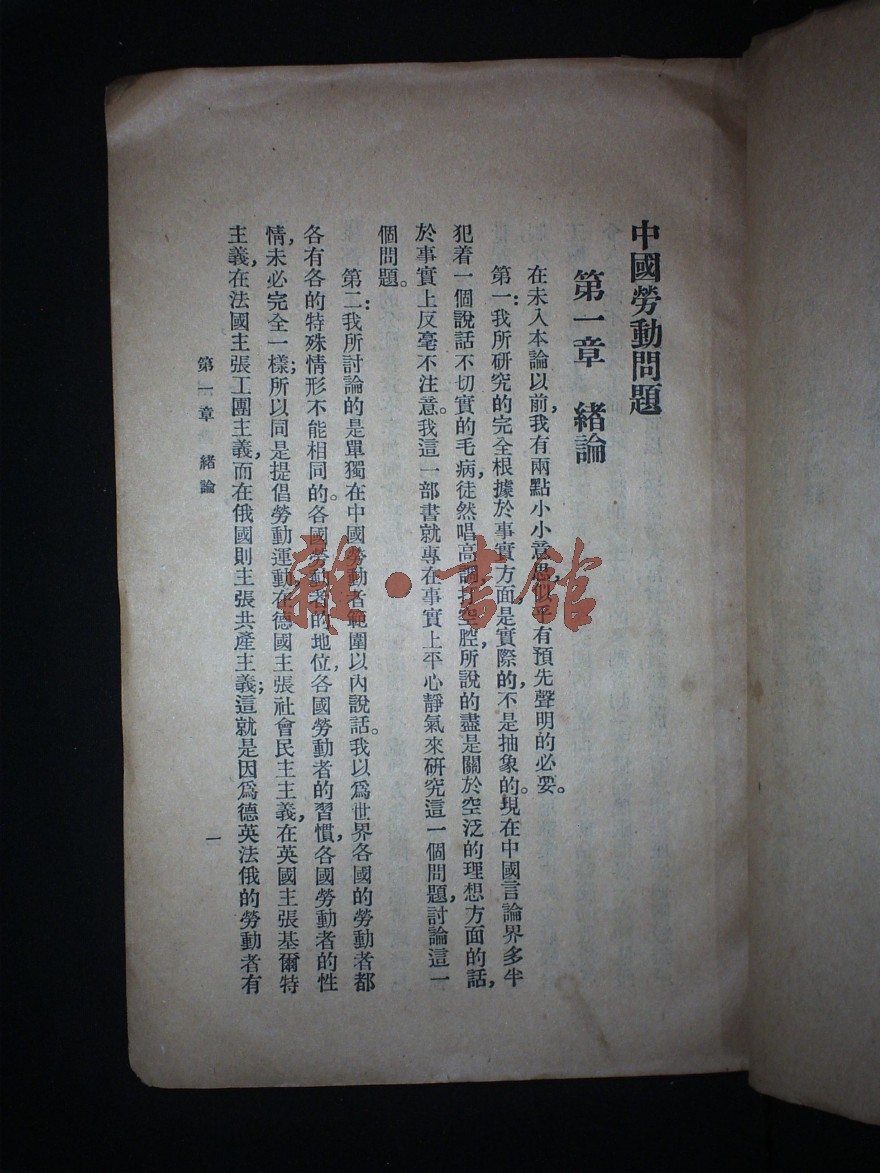 中國勞動問題
第一章 緒論
在未入本論以前,我有兩點小小意思,似乎有預先聲明的必要。
第一:我所研究的完全根據於事實方面,是實際的,不是抽象的。現在中國言論界多半
犯着一個說話不切實的毛病,徒然唱高調,打空腔,所說的盡是關於空泛的理想方面的話,
於事實上反毫不注意。我這一部書就專在事實上平心靜氣來研究這一個問題,討論這一
個問題。
第二:我所討論的是單獨在中國勞動者範圍以內說話。我以爲世界各國的勞動者都
各有各的特殊情形不能相同的。各國勞動者的地位,各國勞動者的習慣,各國勞動者的性
情,未必完全一樣;所以同是提倡勞動運動,在德國主張社會民主主義,在英國主張基爾特
主義,在法國主張工團主義,而在俄國則主張共產主義;這就是因爲德英法俄的勞動者有
第一章 緒論
一
雜·書館